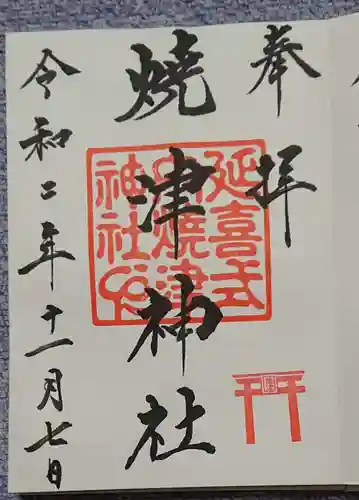 奉拝
焼津神社
延喜式
内焼津
神社印
令和二年十一月七日